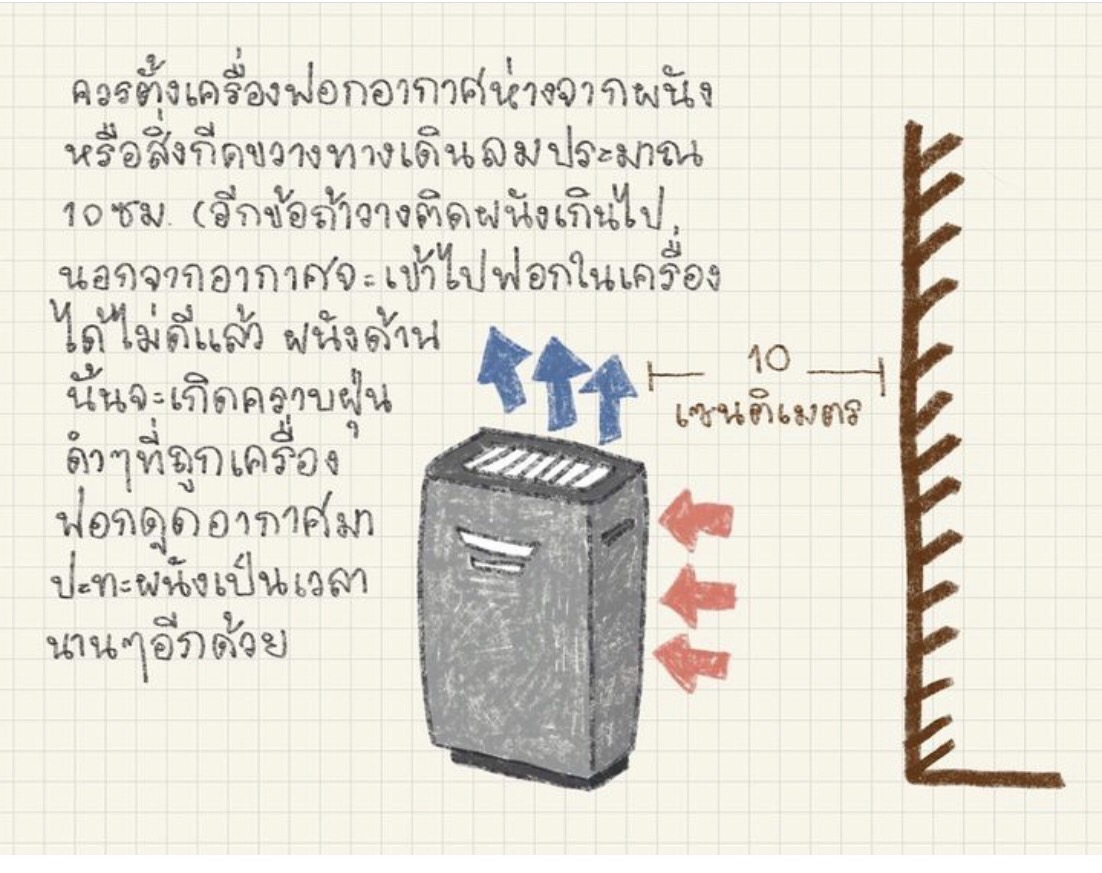 ควรตั้งเครื่องฟอกอากาศห่างจากผนัง
หรือสิ่งกีดขวางทางเดินลมประมาณ
10 ซม. (อีกข้อถ้าวางติดผนังเกินไป
นอกจากอากาศจะเข้าไปฟอกในเครื่อง
ได้ไม่ดีแล้ว ผนังด้าน
นั้นจะเกิดคราบฝุ่น
ดำๆที่ถูกเครื่อง
ฟอกดูดอากาศมา
ปะทะผนังเป็นเวลา
นานๆอีกด้วย
10
เซนติเมตร